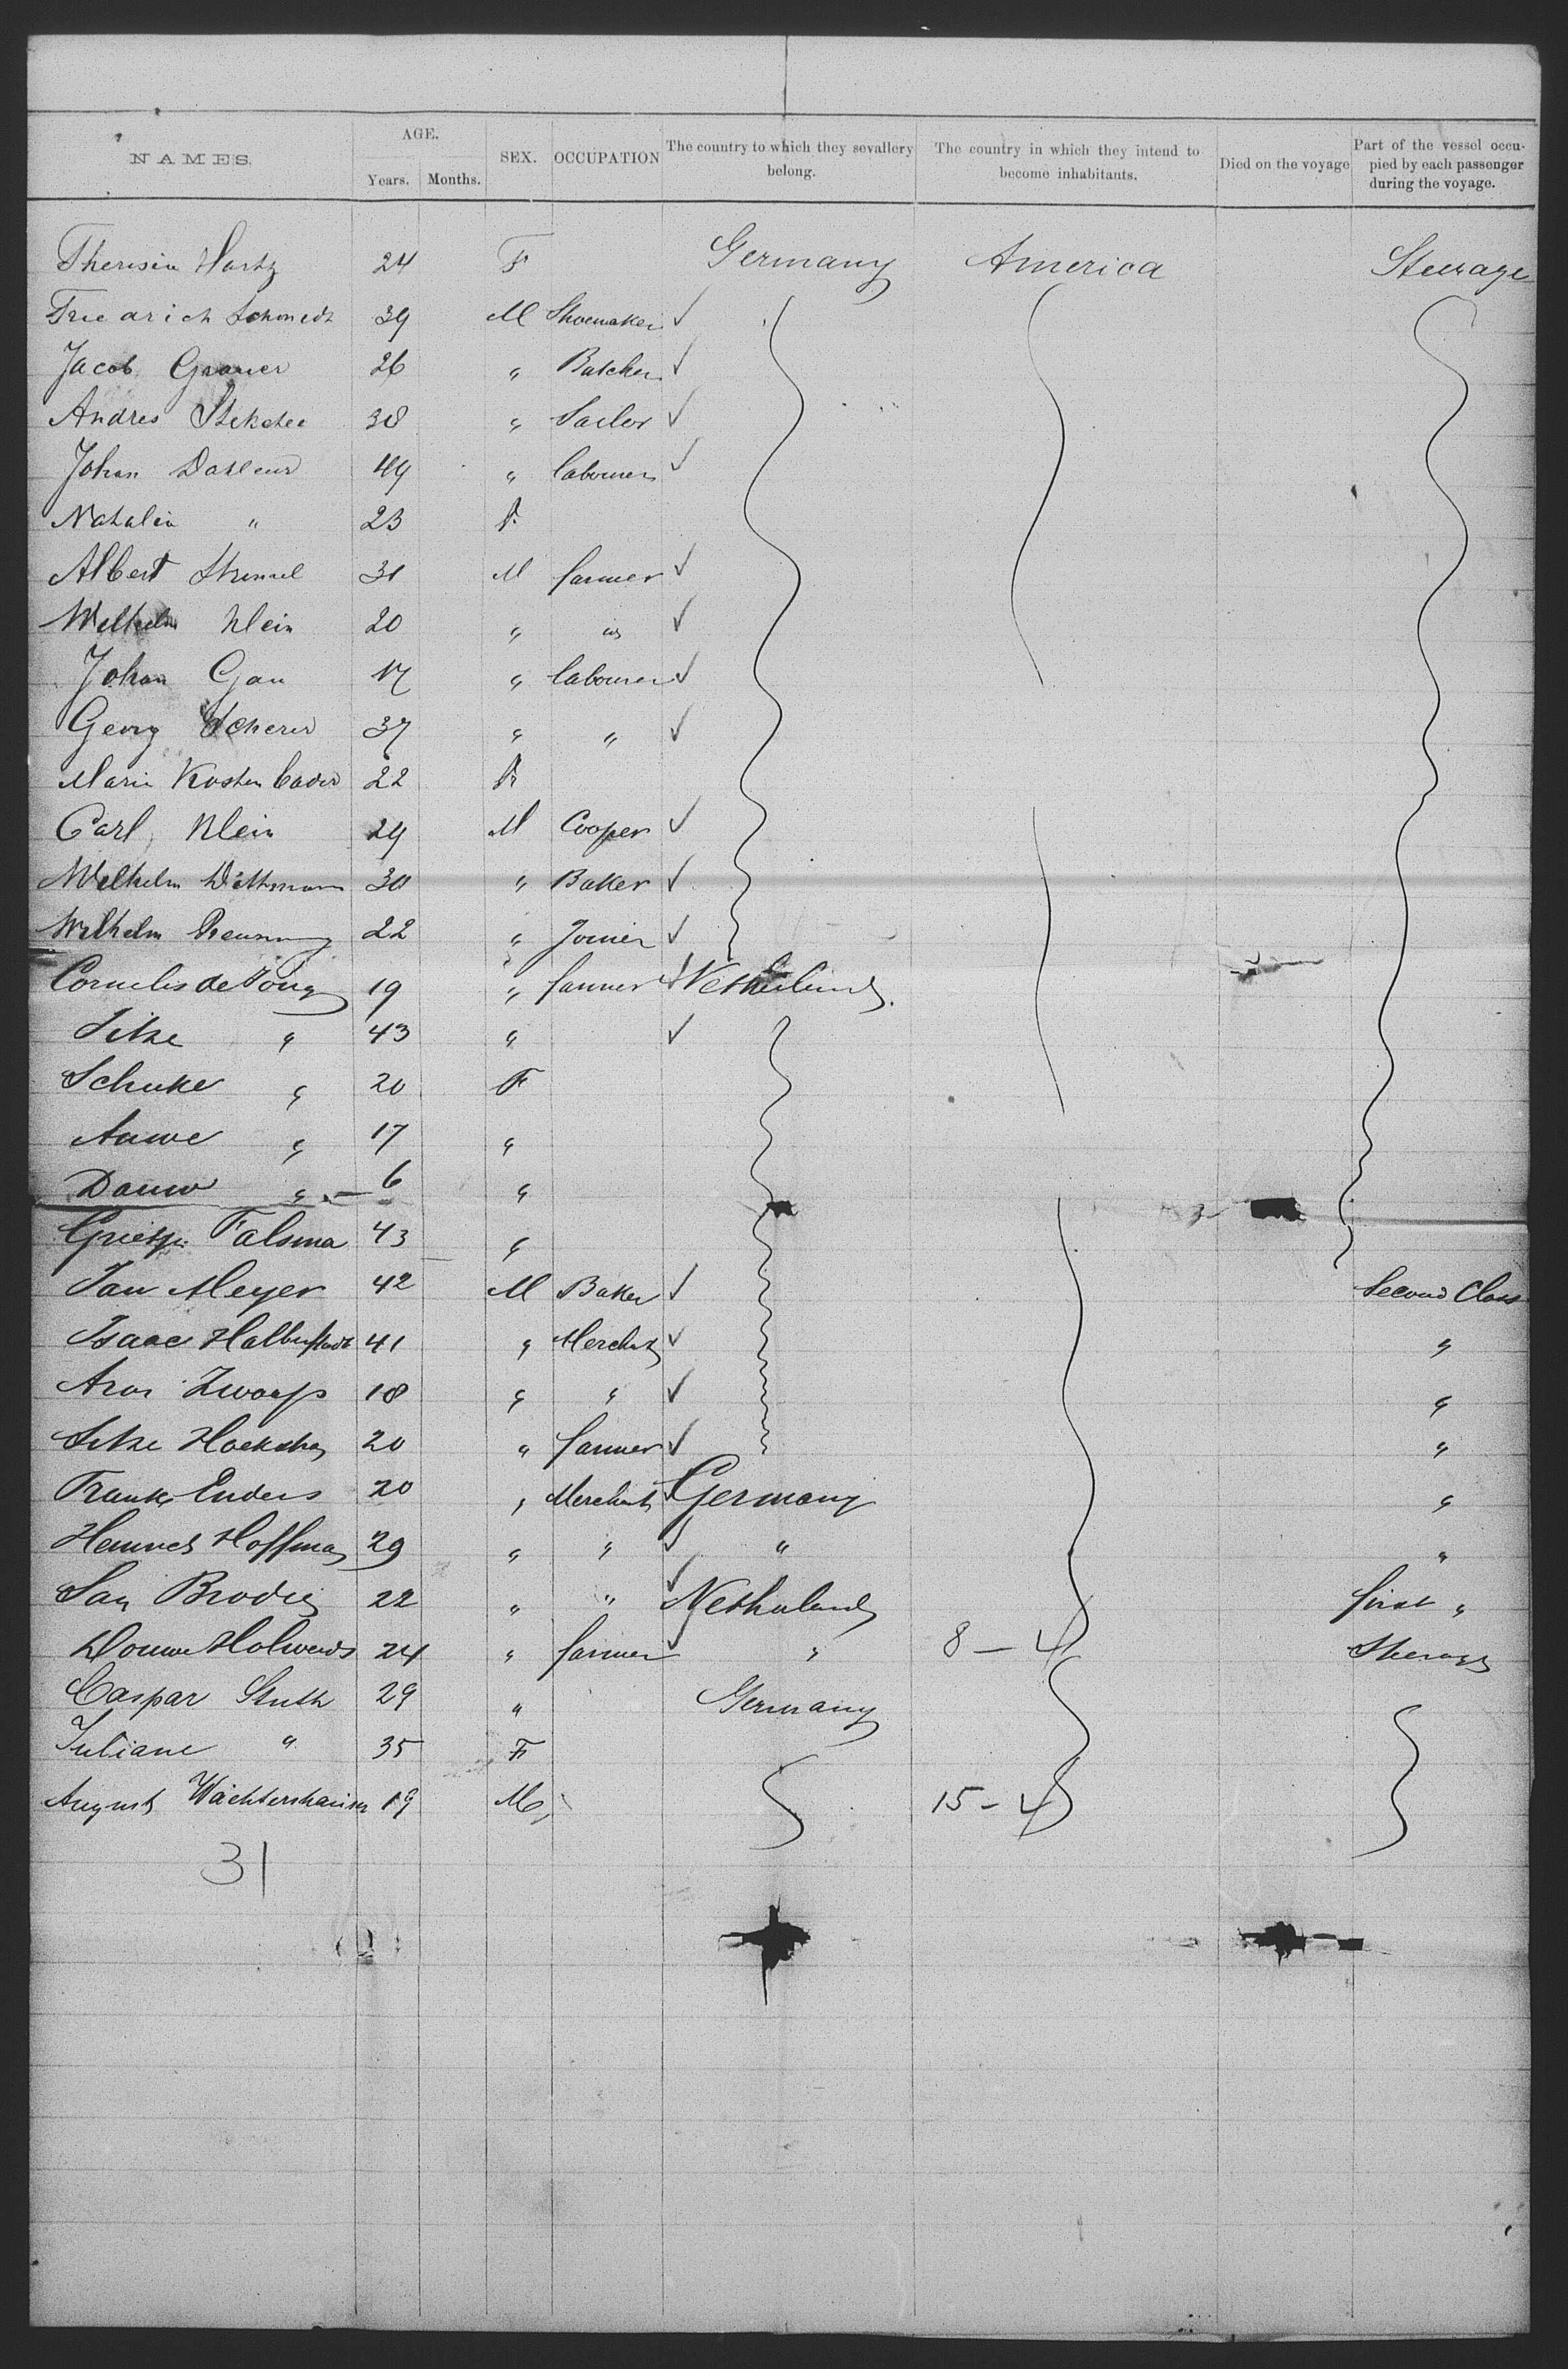 NAMES. AGE. Years. Months. SEX. OCCUPATION The country to which they sevallery belong. The country in which they intend to become inhabitants. Died on the voyage Part of the vessel occu- pied by each passenger during the voyage.
Theresia Hartz 24 F Germany America Steerage
Friedrich Schmidt 39 M Shoemaker ✓
Jacob Grauer 26 " Butcher ✓
Andres 38 " Sailor ✓
Johan 49 " labourer ✓
Natalia " 23 F.
Albert 31 M farmer ✓
Wilhelm Klein 20 " " ✓
Johan Gau 17 " labourer ✓
Georg Scherer 37 " " ✓
Marie Kostenbader 22 F
Carl Klein 29 M Cooper ✓
Wilhelm Dittmann 30 " Baker ✓
Wilhelm 22 " Joiner ✓
Cornelis de Jong 19 " farmer ✓ Netherlands.
Sitke " 43 " ✓
Schuke " 20 F
Auwe " 17 "
Douw " — 6 "
Grietje Falsma 43 "
Jan Meyer 42 M Baker ✓ Second Class
Isaac Halberstadt 41 " Merchant ✓ "
Aron Zwaap 18 " " ✓ "
Sitke Hoekstra 20 " farmer ✓ "
Frank Enders 20 " Merchant ✓ Germany "
Heinrich Hoffman 29 " " ✓ " "
Brodie 22 " " ✓ Netherlands first "
Douwe Holwerda 24 " farmer ✓ " 8 — 4 Steerage
Caspar Stuth 29 " Germany
Juliane " 35 F
August Wächtershäuser 19 M 15 - 4
31